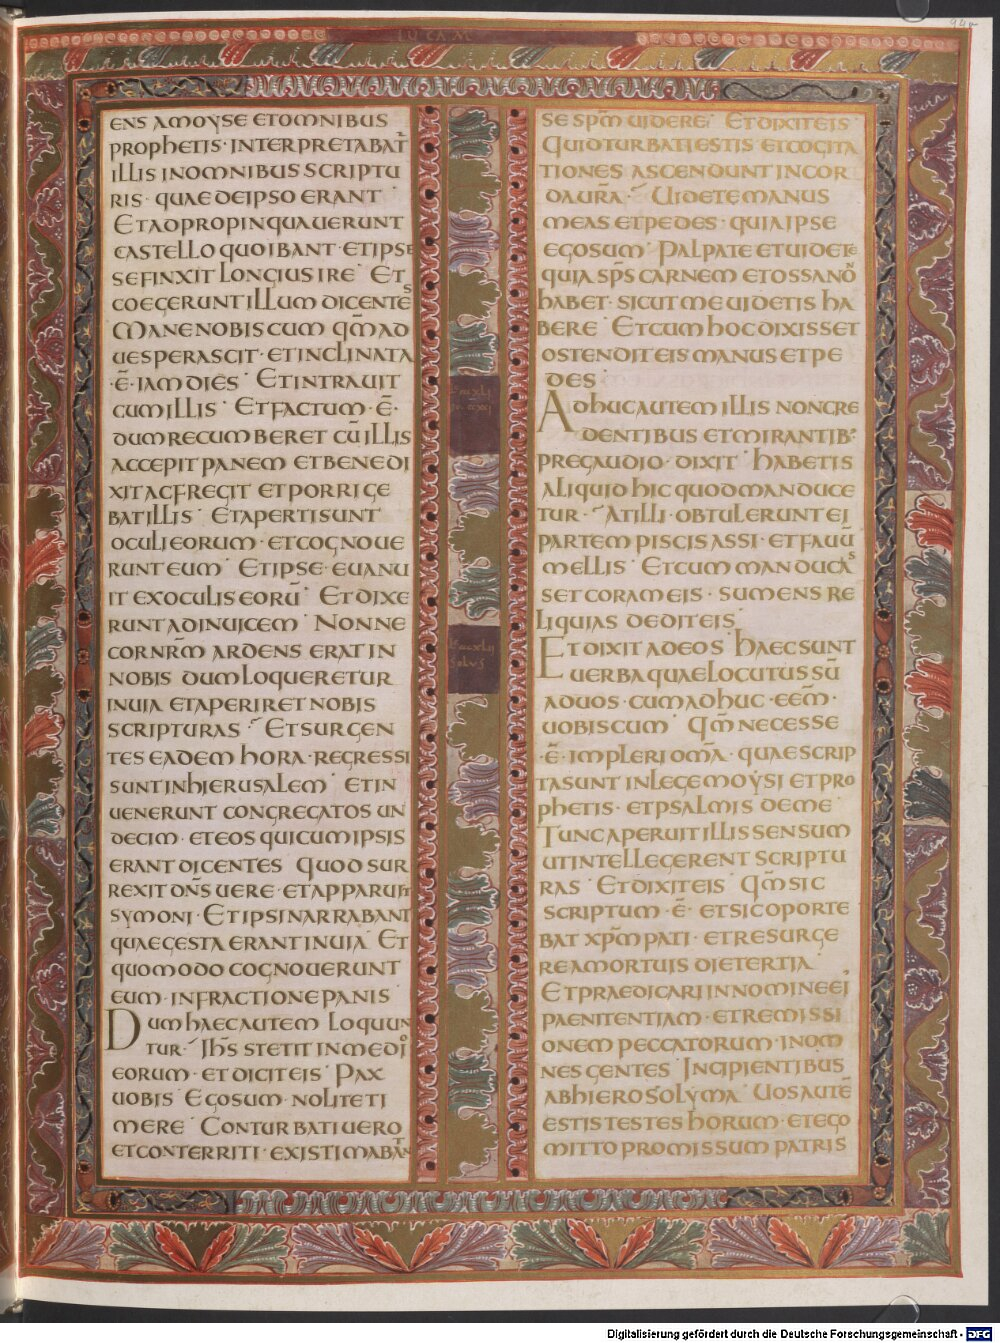 LUCAM
94r
ENS AMOYSE ETOMNIBUS
PROPHETIS · INTERPRETABAT̄
ILLIS INOMNIBUS SCRIPTU
RIS · QUAE DEIPSO ERANT
ETADPROPINQUAUERUNT
CASTELLO QUOIBANT · ETIPSE
SEFINXIT LONGIUS IRE · ET
COEGERUNT ILLUM DICENTES
MANE NOBISCUM QM̄ AD
UESPERASCIT · ETINCLINATA
·Ē· IAM DIES · ETINTRAUIT
CUMILLIS · ETFACTUM ·Ē·
DUM RECUMBERET CŪ ILLIS
ACCEPIT PANEM ETBENEDI
XIT AC FREGIT ETPORRIGE
BAT ILLIS · ETAPERTI SUNT
OCULI EORUM · ETCOGNOUE
RUNT EUM · ETIPSE · EUANU
IT EXOCULIS EORŪ · ETDIXE
RUNT ADINUICEM · NONNE
COR NR̄M ARDENS ERAT IN
NOBIS DUM LOQUERETUR
INUIA ETAPERIRET NOBIS
SCRIPTURAS · ETSURGEN
TES EADEM HORA · REGRESSI
SUNT INHIERUSALEM · ETIN
UENERUNT CONGREGATOS UN
DECIM · ETEOS QUI CUMIPSIS
ERANT DICENTES QUOD SUR
REXIT DN̄S UERE · ETAPPARUIT
SYMONI · ETIPSI NARRABANT
QUAE GESTA ERANT INUIA · ET
QUOMODO COGNOUERUNT
EUM · INFRACTIONE PANIS
DUM HAEC AUTEM LOQUUN
TUR · IHS̄ STETIT INMEDIO
EORUM · ET DICIT EIS · PAX
UOBIS · EGO SUM · NOLITE TI
MERE · CONTURBATI UERO
ETCONTERRITI · EXISTIMABANT
SE SPM̄ UIDERE · ETDIXIT EIS
QUID TURBATI ESTIS ETCOGITA
TIONES ASCENDUNT INCOR
DA UR̄A · UIDETE MANUS
MEAS ETPEDES · QUIA IPSE
EGO SUM · PALPATE ETUIDETE
QUIA SPS̄ CARNEM ETOSSA NON
HABET · SICUT ME UIDETIS HA
BERE · ETCUM HOC DIXISSET
OSTENDIT EIS MANUS ETPE
DES ·
ADHUC AUTEM ILLIS NONCRE
DENTIBUS ETMIRANTIB·
PREGAUDIO · DIXIT · HABETIS
ALIQUID HIC QUOD MANDUCE
TUR · AT ILLI · OBTULERUNT EI
PARTEM PISCIS ASSI · ETFAUŪ
MELLIS · ETCUM MANDUCAS
SET CORAM EIS · SUMENS RE
LIQUIAS DEDIT EIS
ETDIXIT ADEOS · HAEC SUNT
UERBA QUAE LOCUTUS SŪ
ADUOS · CUM ADHUC · EEM̄ ·
UOBISCUM · QM̄ NECESSE
·Ē· IMPLERI OMĀ · QUAE SCRIP
TA SUNT INLEGE MOYSI ETPRO
PHETIS · ETPSALMIS DEME
TUNC APERUIT ILLIS SENSUM
UT INTELLEGERENT SCRIPTU
RAS · ETDIXIT EIS · QM̄ SIC
SCRIPTUM ·Ē· ETSIC OPORTE
BAT XPM̄ PATI · ETRESURGE
RE AMORTUIS DIE TERTIA
ETPRAEDICARI INNOMINE EI
PAENITENTIAM · ETREMISSI
ONEM PECCATORUM · INOM
NES GENTES INCIPIENTIBUS
AB HIEROSOLYMA · UOS AUTĒ
ESTIS TESTES HORUM · ETEGO
MITTO PROMISSUM PATRIS
Digitalisierung gefördert durch die Deutsche Forschungsgemeinschaft - DFG